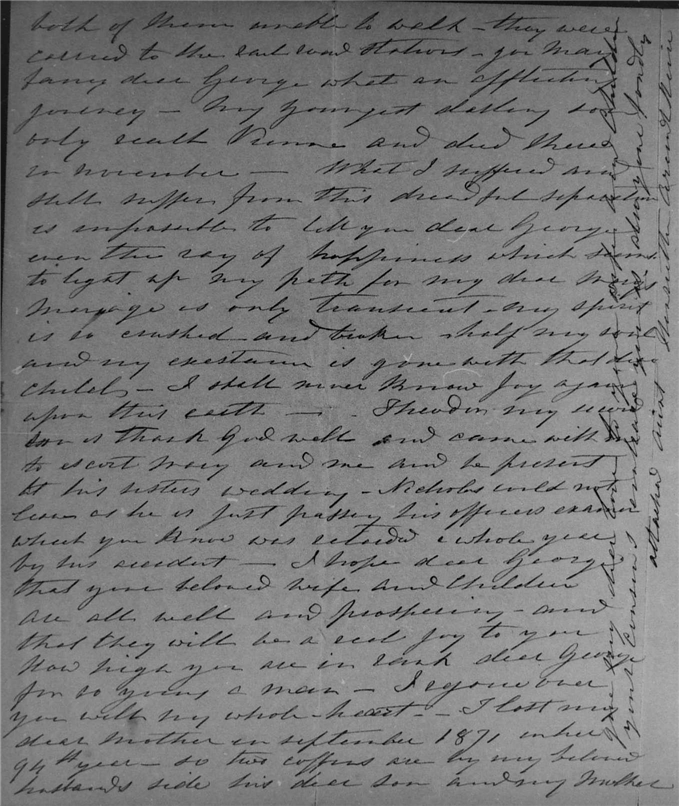 both of them unable to walk - they were
carried to the rail road stations - you may
fancy dear George what an afflicting
journey - My youngest darling son
only reach Vienna and died there
in november - What I suffered and
still suffer from this dreadful separation
is impossible to tell you dear George
even the ray of happiness which seems
to light up my path for my dear Mary's
Marriage is only transient - my spirit
is so crushed and broken half my soul
and my existance is gone with that dear
child - I shall never know Joy again
upon this earth - Theodor my second
son is thank God well and came with me
to escort Mary and me and be present
at his sisters wedding - Nicholas could not
leave as he is just passing his officers examen
which you know was retarded a whole year
by his accident - I hope dear George
that your beloved wife and children
are all well and prospering - and
that they will be a real joy to you
How high you are in rank dear George
for so young a man - I rejoice over
you with my whole heart - I lost my
dear Mother in september 1871 in her
94th year - so two coffins are by my beloved
husbands side his dear son and my Mother
give my dear love to your wife and children
your cousins embrace you as does your fondly
attached aunt Henrietta